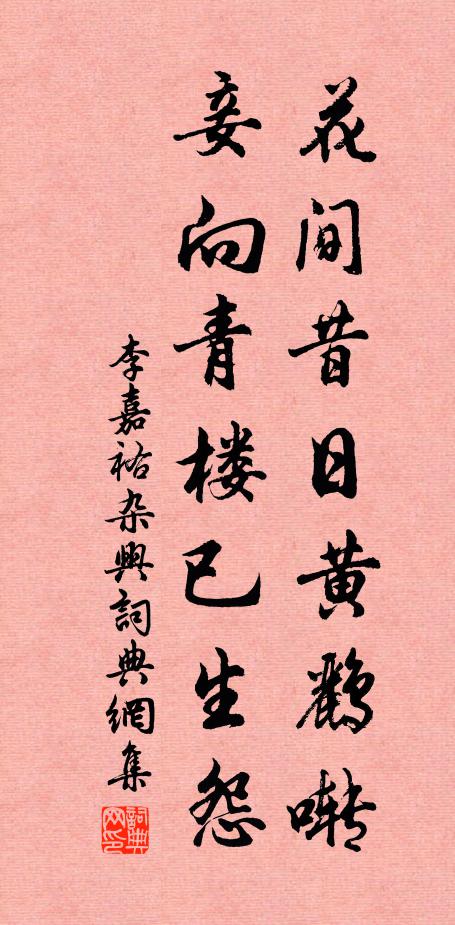 花间昔日黄鸝囀
妾向青楼已生怨
李嘉祐杂興詞典網集
詞典网印